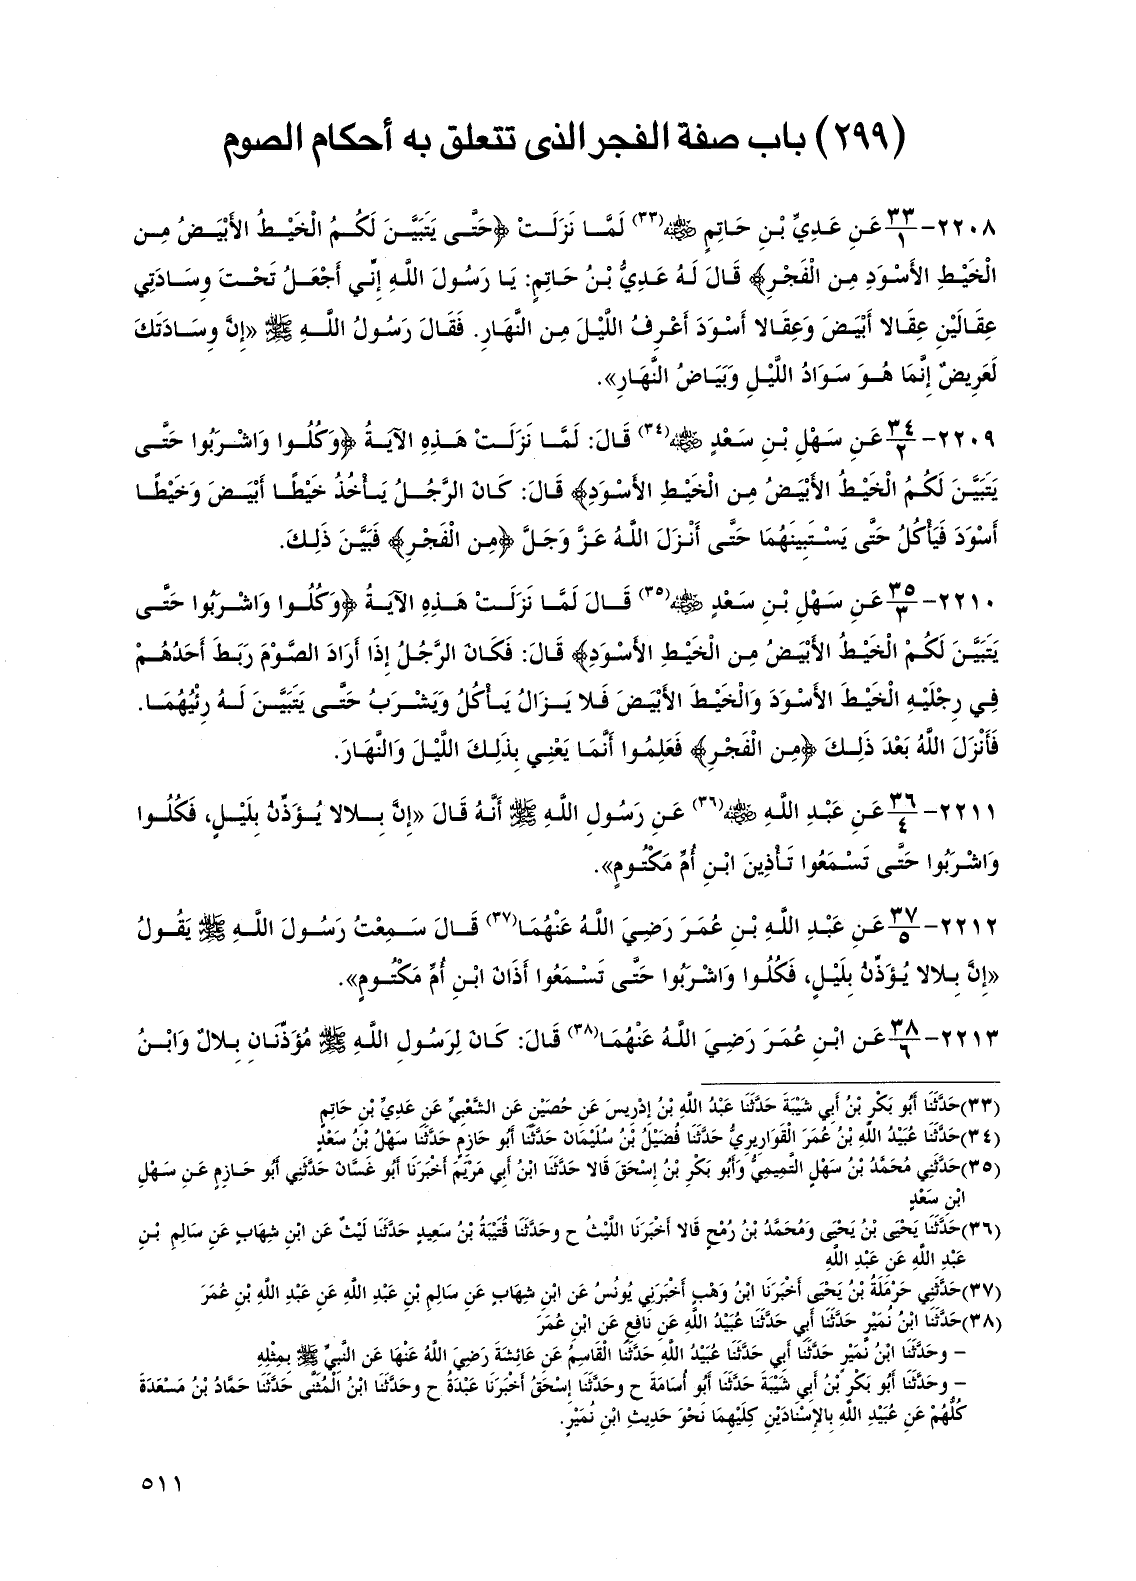 (٢٩٩) باب صفة الفجر الذى تتعلق به أحكام الصوم
٢٢٠٨- ٣٣/١ عَنِ عَدِيِّ بْنِ حَاتِمٍ ﷺ(٣٣) لَمَّا نَزَلَتْ ﴿حَتَّى يَتَبَيَّنَ لَكُمُ الْخَيْطُ الأَبْيَضُ مِنَ
الْخَيْطِ الأَسْوَدِ مِنَ الْفَجْرِ﴾ قَالَ لَهُ عَدِيُّ بْنُ حَاتِمٍ: يَا رَسُولَ اللَّهِ إِنِّي أَجْعَلُ تَحْتَ وِسَادَتِي
عِقَالَيْنِ عِقَالا أَبْيَضَ وَعِقَالا أَسْوَدَ أَعْرِفُ اللَّيْلَ مِنَ النَّهَارِ. فَقَالَ رَسُولُ اللَّهِ ﷺ «إِنَّ وِسَادَتَكَ
لَعَرِيضٌ إِنَّمَا هُوَ سَوَادُ اللَّيْلِ وَبَيَاضُ النَّهَارِ».
٢٢٠٩- ٣٤/٢ عَنِ سَهْلِ بْنِ سَعْدٍ ﷺ(٣٤) قَالَ: لَمَّا نَزَلَتْ هَذِهِ الآيَةُ ﴿وَكُلُوا وَاشْرَبُوا حَتَّى
يَتَبَيَّنَ لَكُمُ الْخَيْطُ الأَبْيَضُ مِنَ الْخَيْطِ الأَسْوَدِ﴾ قَالَ: كَانَ الرَّجُلُ يَأْخُذُ خَيْطًا أَبْيَضَ وَخَيْطًا
أَسْوَدَ فَيَأْكُلُ حَتَّى يَسْتَبِينَهُمَا حَتَّى أَنْزَلَ اللَّهُ عَزَّ وَجَلَّ ﴿مِنَ الْفَجْرِ﴾ فَبَيَّنَ ذَلِكَ.
٢٢١٠- ٣٥/٣ عَنِ سَهْلِ بْنِ سَعْدٍ ﷺ(٣٥) قَالَ لَمَّا نَزَلَتْ هَذِهِ الآيَةُ ﴿وَكُلُوا وَاشْرَبُوا حَتَّى
يَتَبَيَّنَ لَكُمْ الْخَيْطُ الأَبْيَضُ مِنَ الْخَيْطِ الأَسْوَدِ﴾ قَالَ: فَكَانَ الرَّجُلُ إِذَا أَرَادَ الصَّوْمَ رَبَطَ أَحَدُهُمْ
فِي رِجْلَيْهِ الْخَيْطَ الأَسْوَدَ وَالْخَيْطَ الأَبْيَضَ فَلا يَزَالُ يَأْكُلُ وَيَشْرَبُ حَتَّى يَتَبَيَّنَ لَهُ رِئْيُهُمَا.
فَأَنْزَلَ اللَّهُ بَعْدَ ذَلِكَ ﴿مِنَ الْفَجْرِ﴾ فَعَلِمُوا أَنَّمَا يَعْنِي بِذَلِكَ اللَّيْلَ وَالنَّهَارَ.
٢٢١١- ٣٦/٤ عَنِ عَبْدِ اللَّهِ ﷺ(٣٦) عَنِ رَسُولِ اللَّهِ ﷺ أَنَّهُ قَالَ «إِنَّ بِلالا يُؤَذِّنُ بِلَيْلٍ، فَكُلُوا
وَاشْرَبُوا حَتَّى تَسْمَعُوا تَأْذِينَ ابْنِ أُمِّ مَكْتُومٍ».
٢٢١٢- ٣٧/٥ عَنِ عَبْدِ اللَّهِ بْنِ عُمَرَ رَضِيَ اللَّهُ عَنْهُمَا(٣٧) قَالَ سَمِعْتُ رَسُولَ اللَّهِ ﷺ يَقُولُ
«إِنَّ بِلالا يُؤَذِّنُ بِلَيْلٍ، فَكُلُوا وَاشْرَبُوا حَتَّى تَسْمَعُوا أَذَانَ ابْنِ أُمِّ مَكْتُومٍ».
٢٢١٣- ٣٨/٦ عَنِ ابْنِ عُمَرَ رَضِيَ اللَّهُ عَنْهُمَا(٣٨) قَالَ: كَانَ لِرَسُولِ اللَّهِ ﷺ مُؤَذِّنَانِ بِلالٌ وَابْنُ
(٣٣) حَدَّثَنَا أَبُو بَكْرِ بْنُ أَبِي شَيْبَةَ حَدَّثَنَا عَبْدُ اللَّهِ بْنُ إِدْرِيسَ عَنِ حُصَيْنٍ عَنِ الشَّعْبِيِّ عَنِ عَدِيِّ بْنِ حَاتِمٍ
(٣٤) حَدَّثَنَا عُبَيْدُ اللَّهِ بْنُ عُمَرَ الْقَوَارِيرِيُّ حَدَّثَنَا فُضَيْلُ بْنُ سُلَيْمَانَ حَدَّثَنَا أَبُو حَازِمٍ حَدَّثَنَا سَهْلُ بْنُ سَعْدٍ
(٣٥) حَدَّثَنِي مُحَمَّدُ بْنُ سَهْلٍ التَّمِيمِيُّ وَأَبُو بَكْرِ بْنُ إِسْحَقَ قَالا حَدَّثَنَا ابْنُ أَبِي مَرْيَمَ أَخْبَرَنَا أَبُو غَسَّانَ حَدَّثَنِي أَبُو حَازِمٍ عَنِ سَهْلِ
ابْنِ سَعْدٍ
(٣٦) حَدَّثَنَا يَحْيَى بْنُ يَحْيَى وَمُحَمَّدُ بْنُ رُمْحٍ قَالا أَخْبَرَنَا اللَّيْثُ ح وحَدَّثَنَا قُتَيْبَةُ بْنُ سَعِيدٍ حَدَّثَنَا لَيْثٌ عَنِ ابْنِ شِهَابٍ عَنِ سَالِمِ بْنِ
عَبْدِ اللَّهِ عَنِ عَبْدِ اللَّهِ
(٣٧) حَدَّثَنِي حَرْمَلَةُ بْنُ يَحْيَى أَخْبَرَنَا ابْنُ وَهْبٍ أَخْبَرَنِي يُونُسُ عَنِ ابْنِ شِهَابٍ عَنِ سَالِمِ بْنِ عَبْدِ اللَّهِ عَنِ عَبْدِ اللَّهِ بْنِ عُمَرَ
(٣٨) حَدَّثَنَا ابْنُ نُمَيْرٍ حَدَّثَنَا أَبِي حَدَّثَنَا عُبَيْدُ اللَّهِ عَنِ نَافِعٍ عَنِ ابْنِ عُمَرَ
– وحَدَّثَنَا ابْنُ نُمَيْرٍ حَدَّثَنَا أَبِي حَدَّثَنَا عُبَيْدُ اللَّهِ حَدَّثَنَا الْقَاسِمُ عَنِ عَائِشَةَ رَضِيَ اللَّهُ عَنْهَا عَنِ النَّبِيِّ ﷺ بِمِثْلِهِ
– وحَدَّثَنَا أَبُو بَكْرِ بْنُ أَبِي شَيْبَةَ حَدَّثَنَا أَبُو أُسَامَةَ ح وحَدَّثَنَا إِسْحَقُ أَخْبَرَنَا عَبْدَةُ ح وحَدَّثَنَا ابْنُ الْمُثَنَّى حَدَّثَنَا حَمَّادُ بْنُ مَسْعَدَةَ
كُلُّهُمْ عَنِ عُبَيْدِ اللَّهِ بِالإِسْنَادَيْنِ كِلَيْهِمَا نَحْوَ حَدِيثِ ابْنِ نُمَيْرٍ.
٥١١